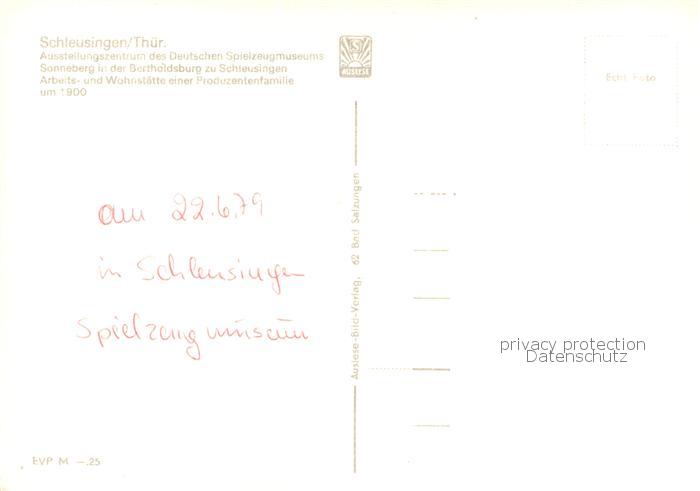 Schleusingen/Thür.
Ausstellungszentrum des Deutschen Spielzeugmuseums
Sonneberg in der Bertholdsburg zu Schleusingen
Arbeits- und Wohnstätte einer Produzentenfamilie
um 1900
AUSLESE
Echt Foto
am 22.6.79
in Schleusingen
Spielzeugmuseum
Auslese-Bild-Verlag, 62 Bad Salzungen
privacy protection
Datenschutz
EVP M —.25